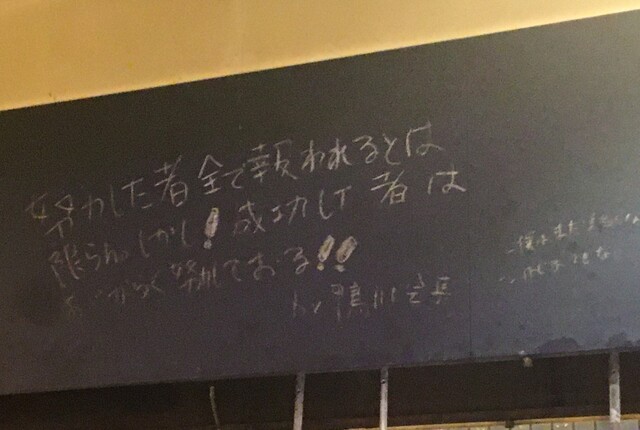 努力した者全て報われるとは
限らん。しかし!成功した者は
すべからく努力しておる!!
by 鴨川会長